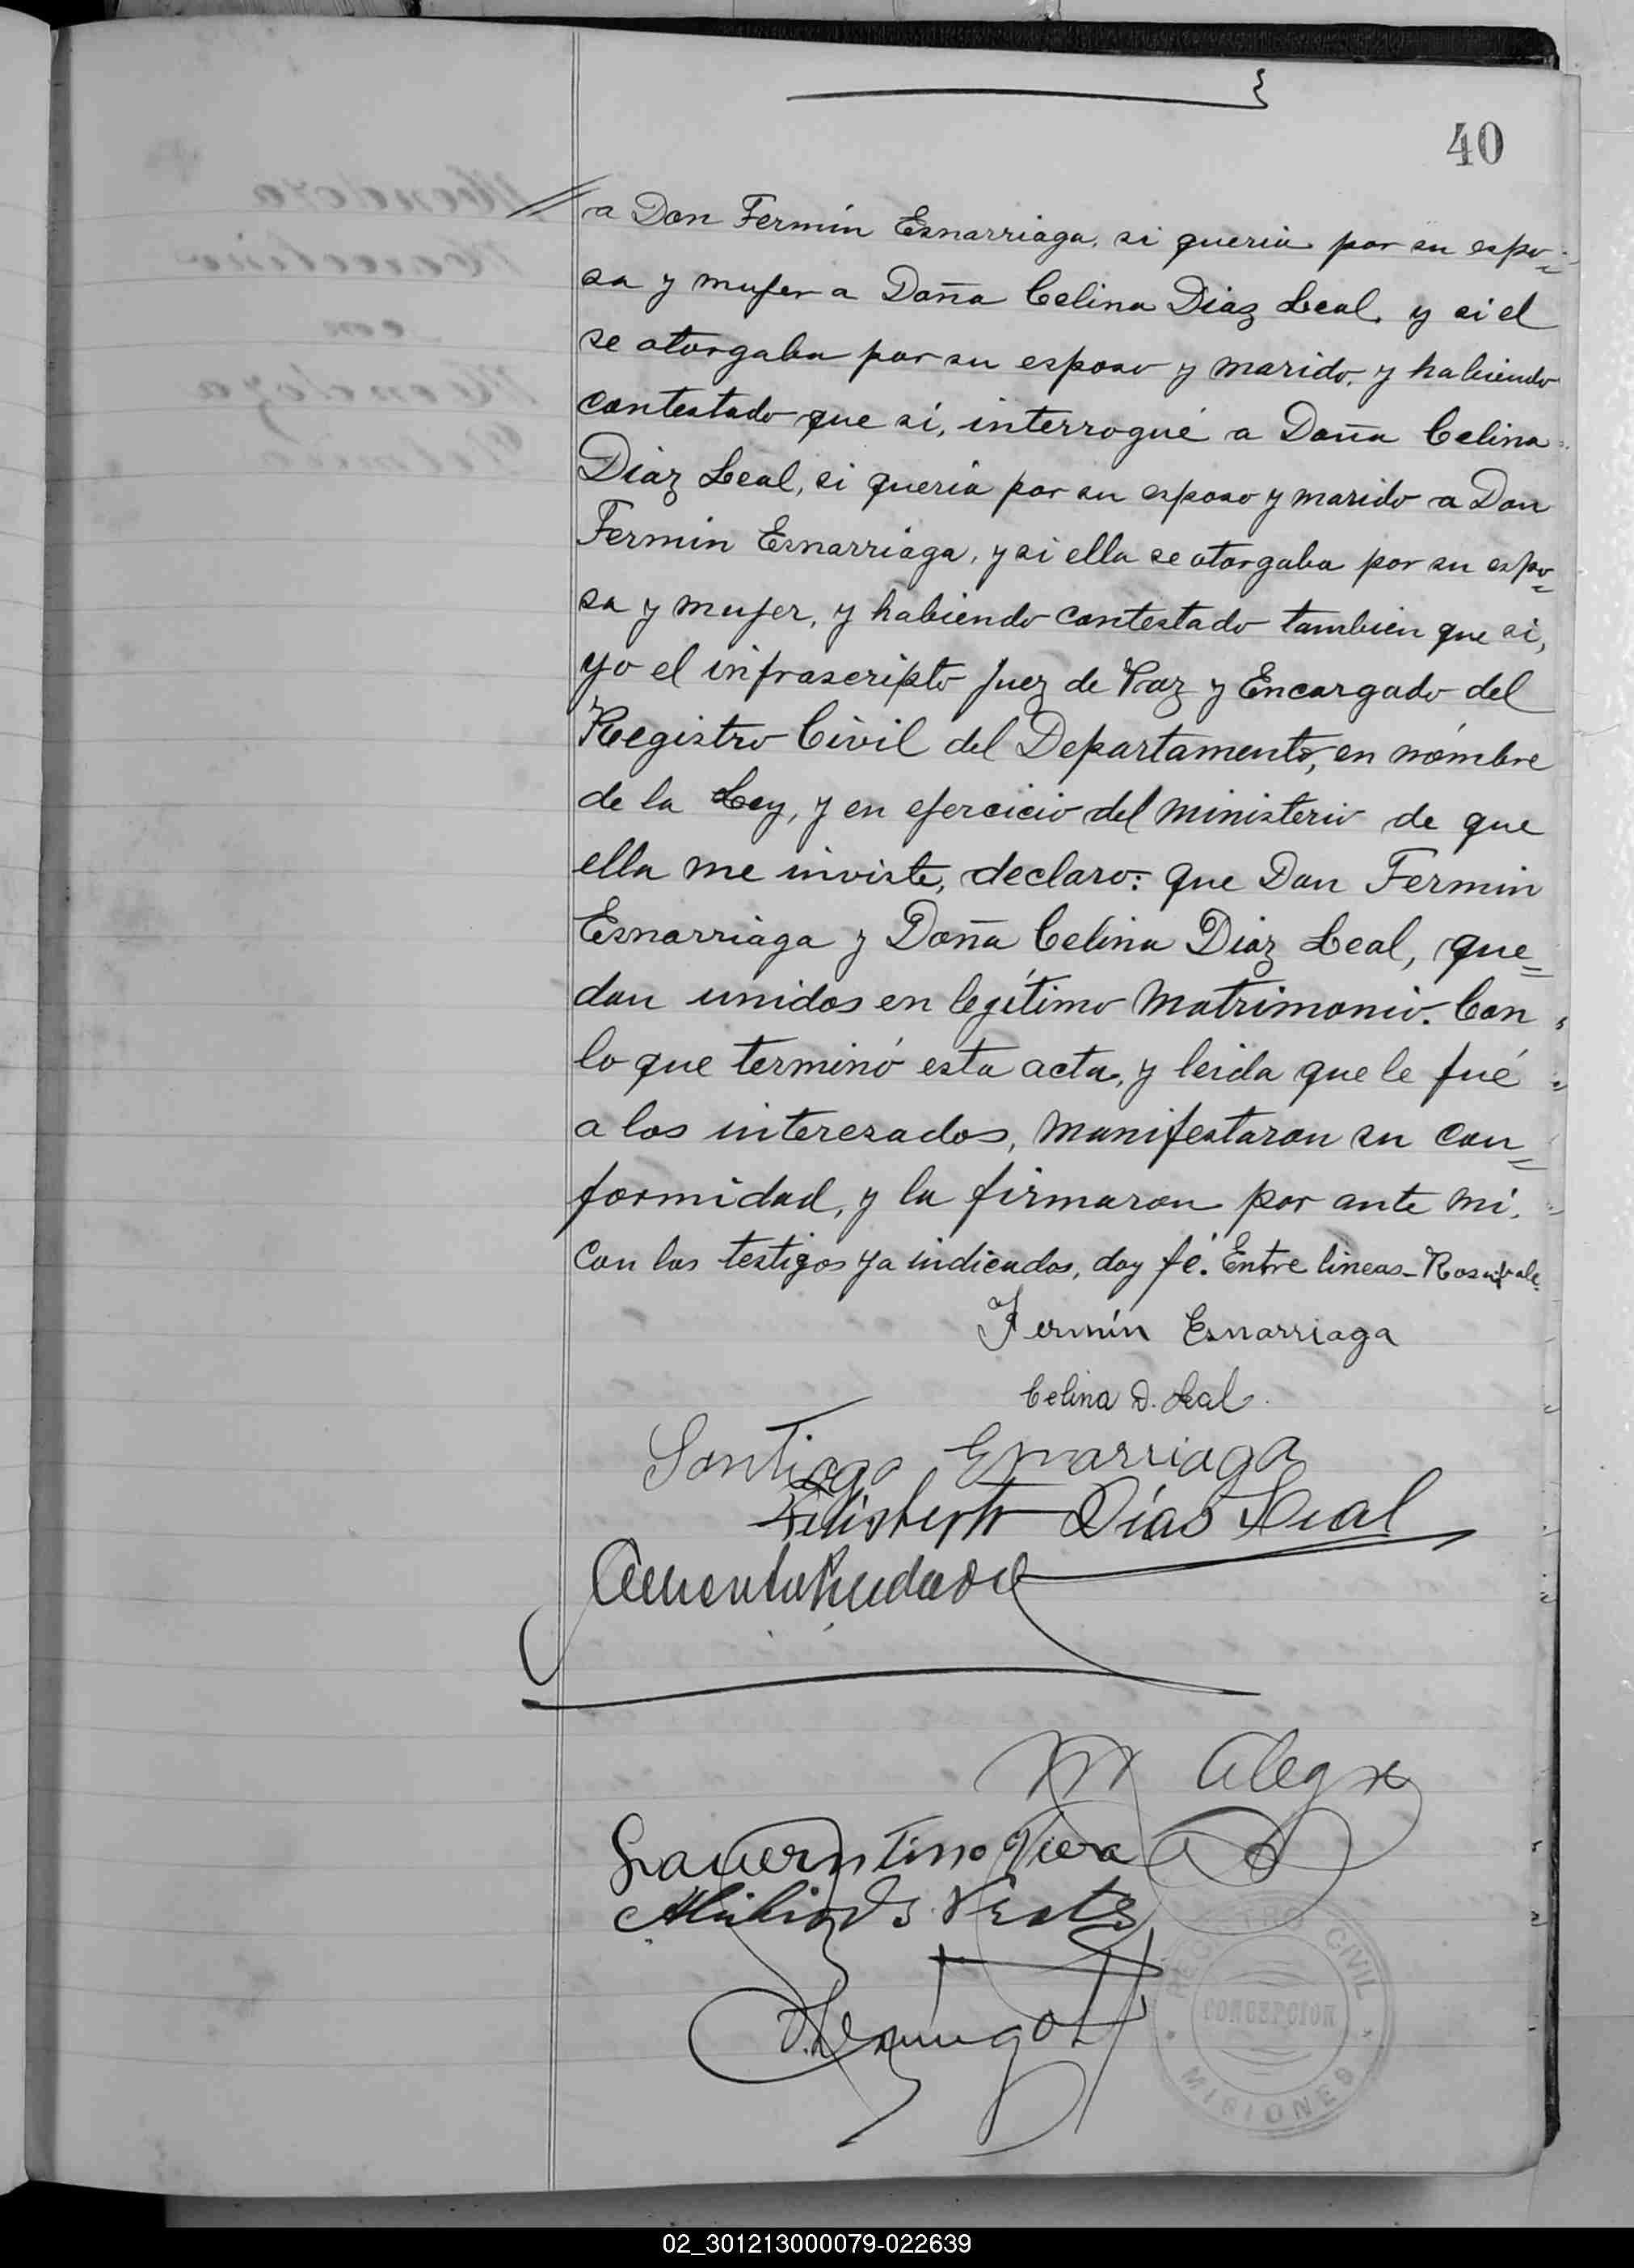 40
a Don Fermín Esnarriaga, si queria por su espo=
sa y mujer a Doña Celina Diaz Leal, y si el
se otorgaba por su esposo y marido, y habiendo
contestado que si, interrogué a Doña Celina
Diaz Leal, si queria por su esposo y marido a Don
Fermin Esnarriaga, y si ella se otorgaba por su espo=
sa y mujer, y habiendo contestado tambien que si,
yo el infrascripto Juez de Paz y Encargado del
Registro Civil del Departamento, en nombre
de la Ley, y en ejercicio del ministerio de que
ella me inviste, declaro: que Don Fermin
Esnarriaga y Doña Celina Diaz Leal, que=
dan unidos en legítimo Matrimonio. Con
lo que terminó esta acta, y leida que le fué
a los interesados, manifestaron su con=
formidad, y la firmaron por ante mi,
con los testigos ya indicados, doy fé. Entre lineas_ Rosa, vale.
Fermín Esnarriaga
Celina D. Leal.
Santiago Esnarriaga
Días Leal
M Alegre
Viera
REGISTRO CIVIL
CONCEPCION
MISIONES
02_301213000079-022639